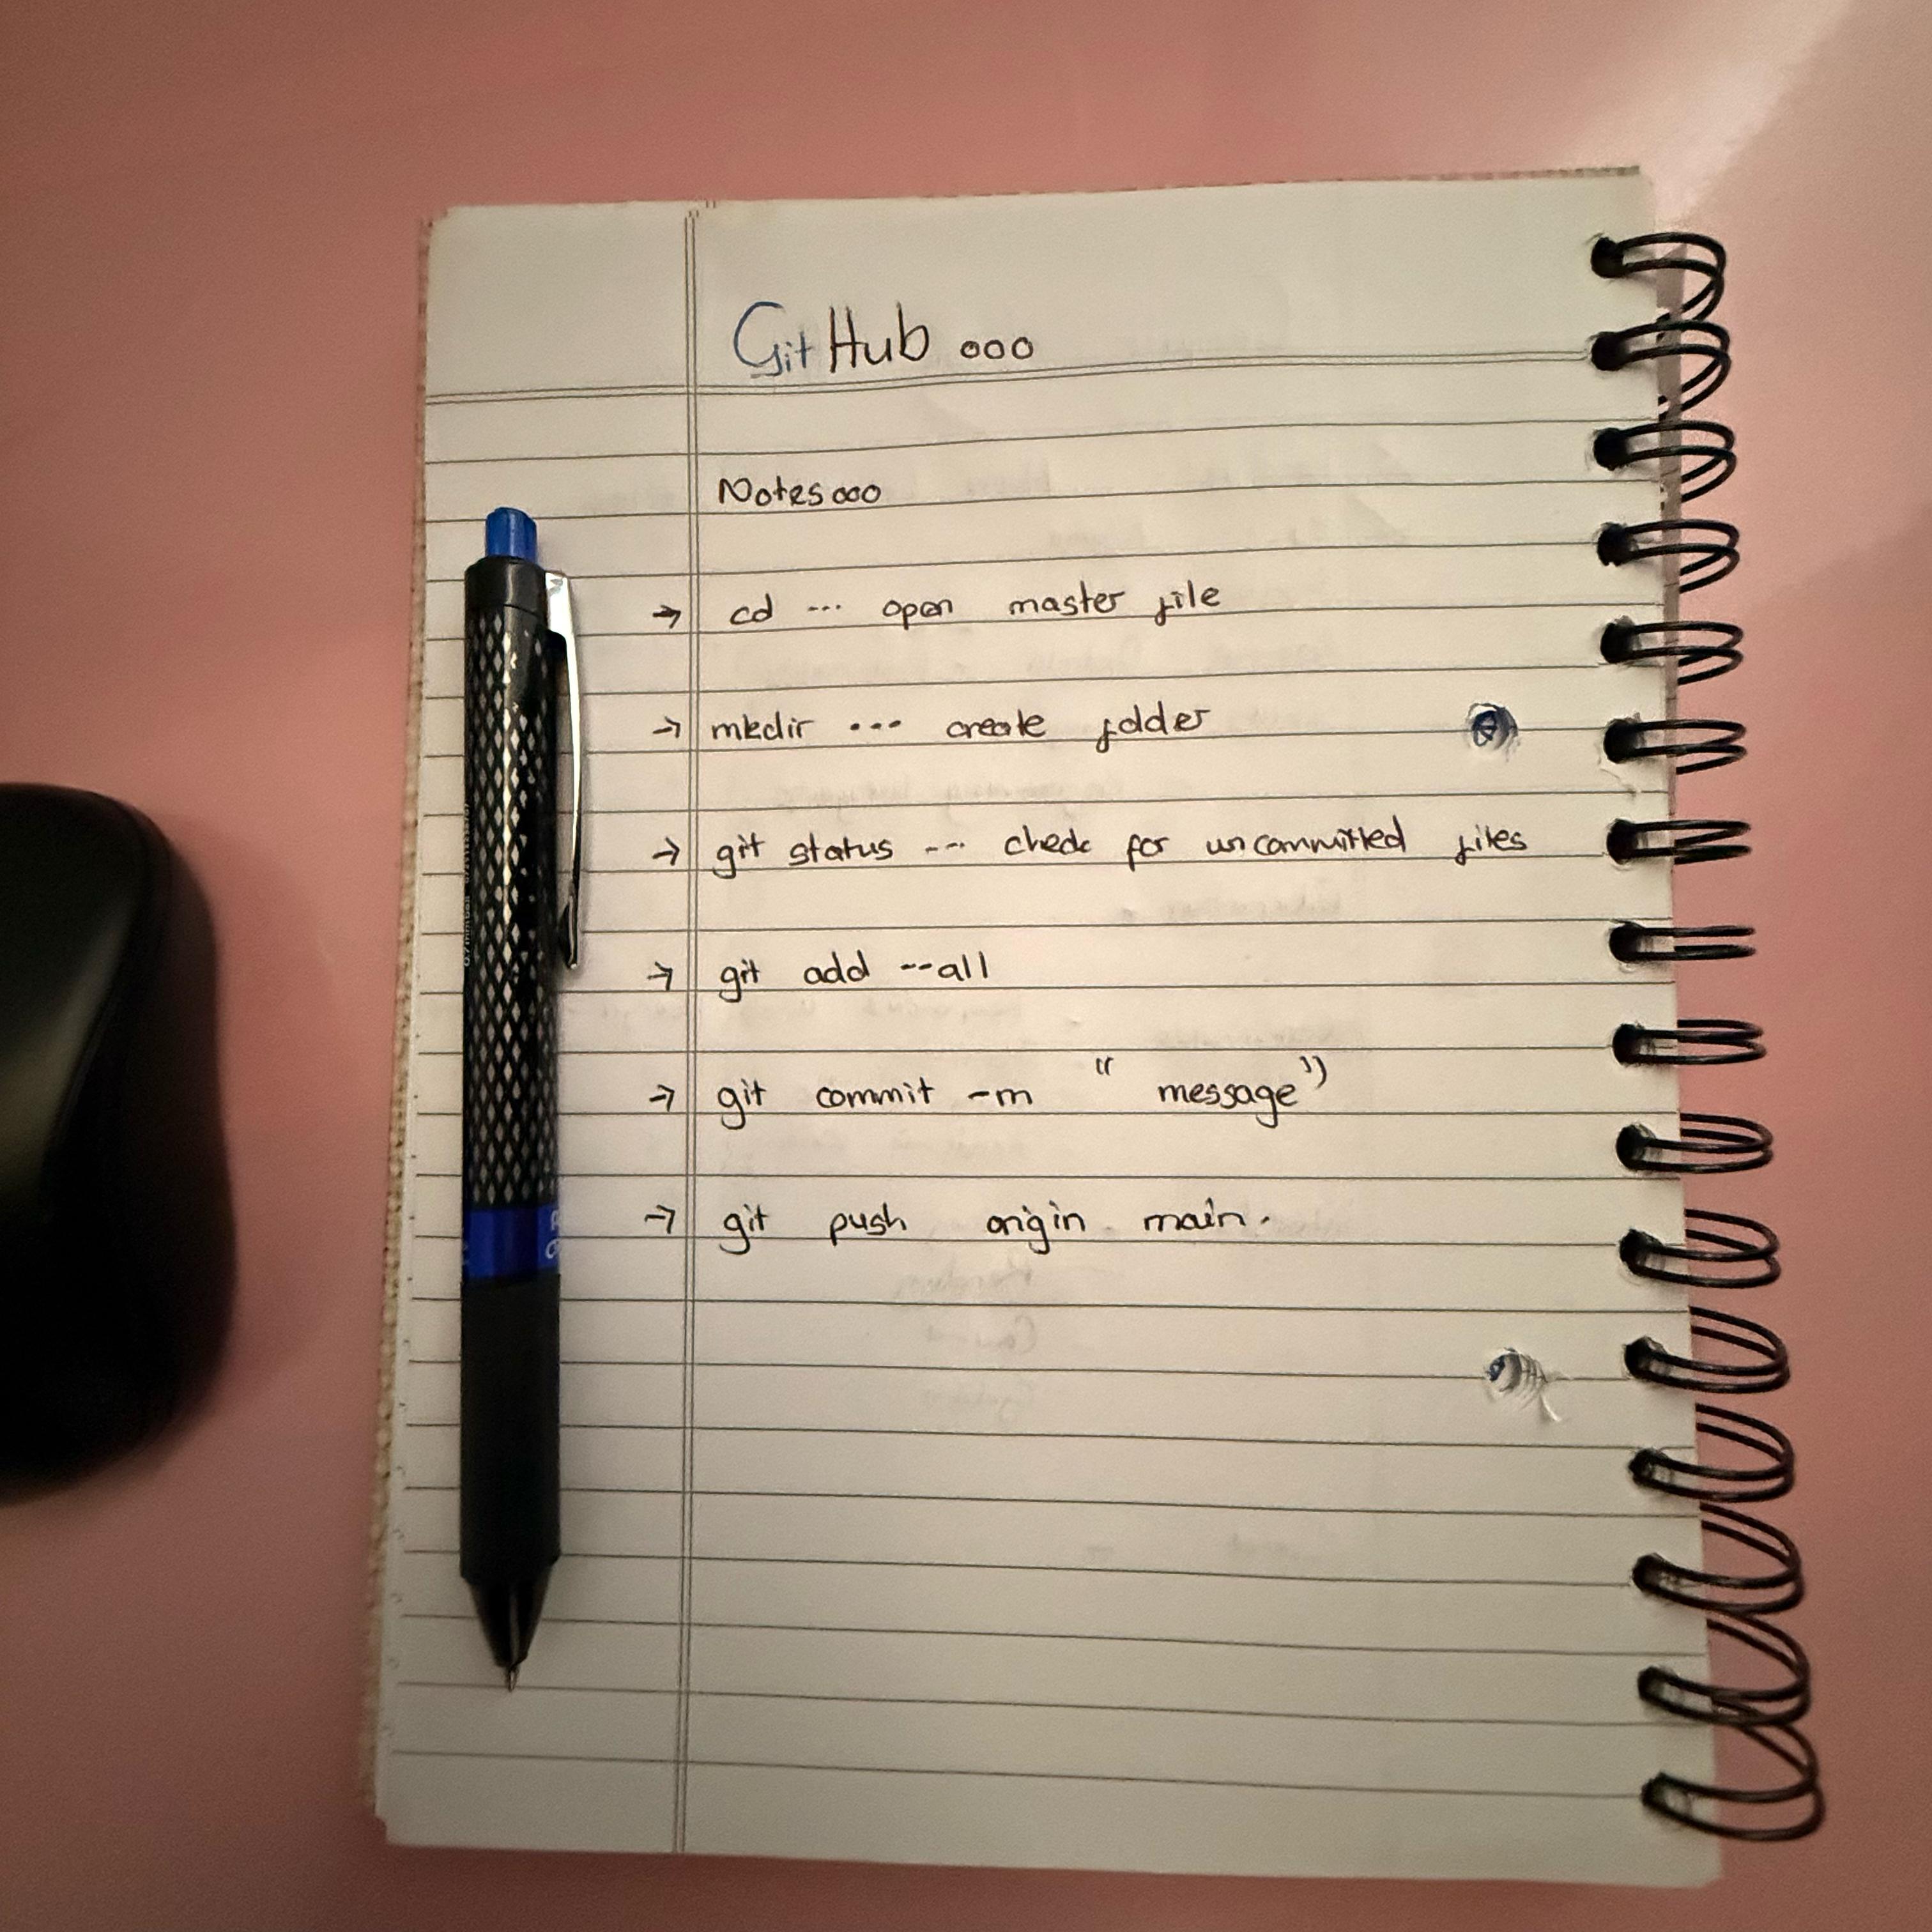 GitHub ooo
Notes ooo
→ cd --- open master file
→ mkdir ... create folder
→ git status --- check for uncommitted files
→ git add --all
→ git commit -m " message"
→ git push origin main.